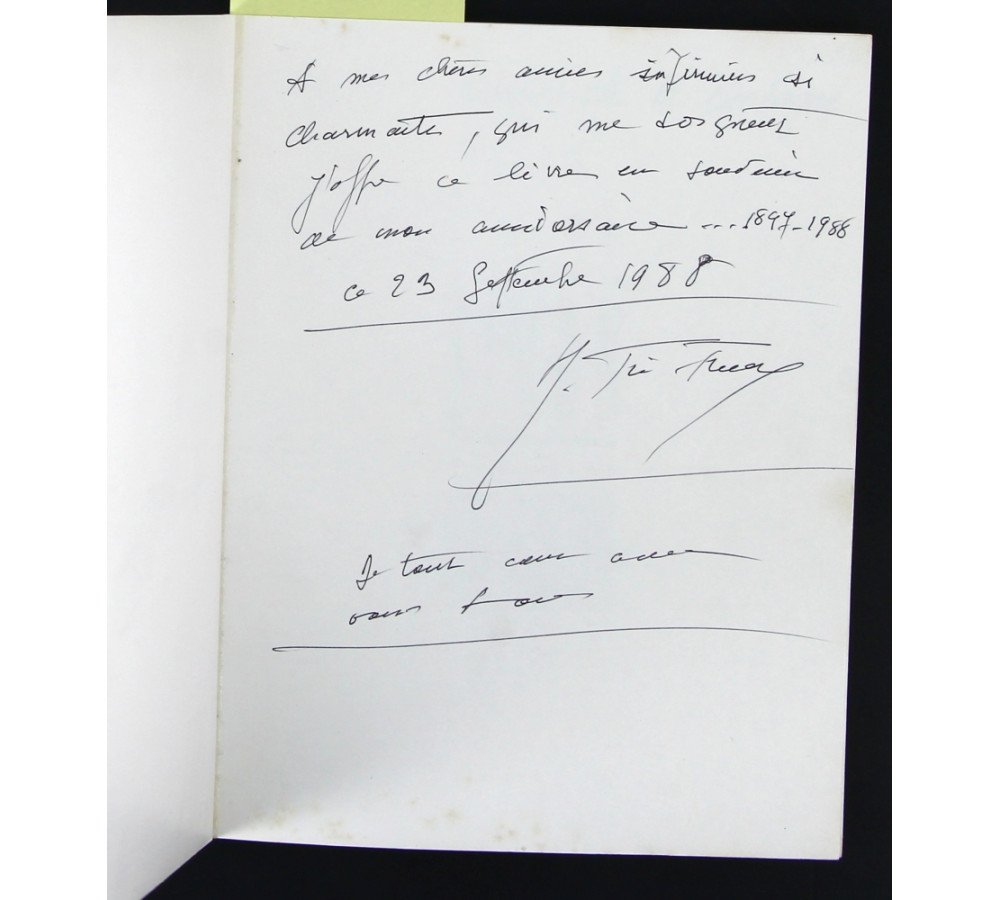 A mes chères amies infirmières si
charmantes, qui me soignent
j'offre ce livre en souvenir
de mon anniversaire ... 1897-1988
ce 23 Septembre 1988
H.
De tout cœur avec
vous tous